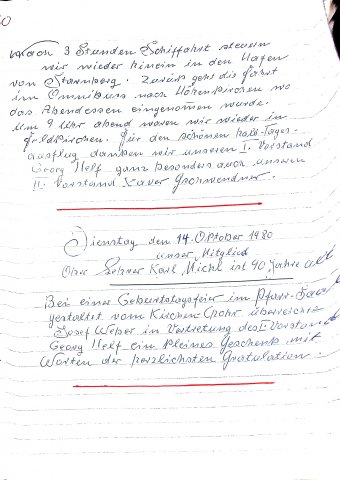 Nach 3 Stunden Schiffahrt steuern
wir wieder hinein in den Hafen
von Starnberg. Zurück gehts die Fahrt
im Omnibuss nach Höhenkirchen wo
das Abendessen eingenommen wurde.
Um 9 Uhr abend waren wir wieder in
Feldkirchen. Für den schönen halb-Tages-
ausflug danken wir unseren I. Vorstand
Georg Helf ganz besonders auch unseren
II. Vorstand Xaver Gschwendner.
Dienstag den 14. Oktober 1980
unser Mitglied
Ober Lehrer Karl Michl ist 90 Jahre alt
Bei einer Geburtstagsfeier im Pfarr-Saal
gestaltet vom Kirchen Chohr überreichte
Josef Weber in Vertretung des I. Vorstand
Georg Helf ein kleines Geschenk mit
Worten der herzlichsten Gratulation.